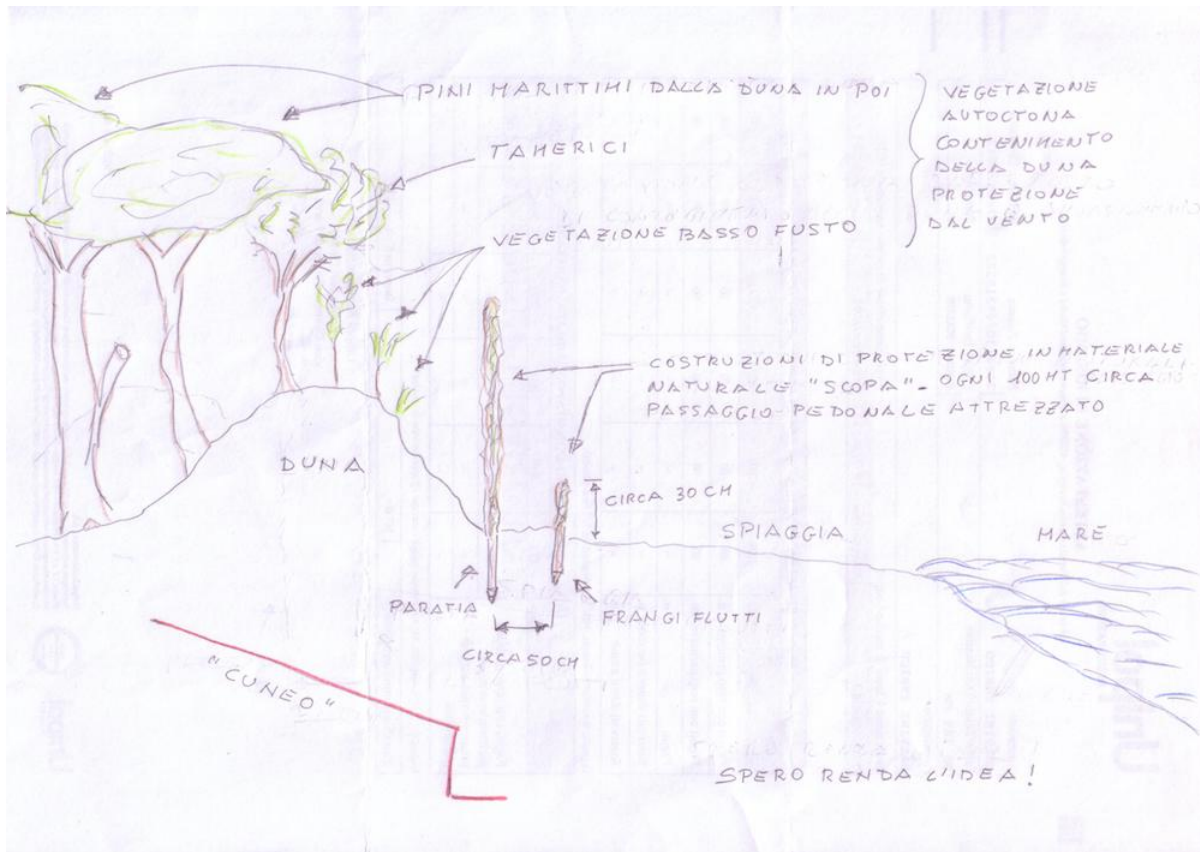 PINI MARITTIMI DALLA DUNA IN POI
TAMERICI
VEGETAZIONE BASSO FUSTO
VEGETAZIONE
AUTOCTONA
CONTENIMENTO
DELLA DUNA
PROTEZIONE
DAL VENTO
COSTRUZIONI DI PROTEZIONE IN MATERIALE
NATURALE "SCOPA". OGNI 100 MT CIRCA
PASSAGGIO PEDONALE ATTREZZATO
DUNA
CIRCA 30 CM
SPIAGGIA
MARE
PARATIA
FRANGI FLUTTI
CIRCA 50 CM
"CUNEO"
SPERO RENDA L'IDEA!